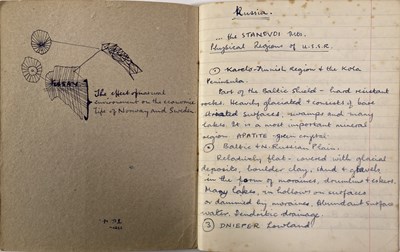 The effect of
environment on the economic
life of Norway and Sweden
Russia.
... the STANOVOI mts.
Physical Regions of U.S.S.R.
① Karelo-Finnish Region & the Kola
Peninsula.
Part of the Baltic Shield - hard resistant
rocks. Heavily glaciated & consists of bare
surfaces, swamps and many
lakes. It is a most important mineral
region APATITE - green crystal
② Baltic & N. Russian Plain.
Relatively flat - covered with glacial
deposits, boulder clay, sand & gravels
in the form of moraines, drumlins & eskers.
Many lakes, in hollows on surfaces
or dammed by moraines. Abundant surface
water. Dendritic drainage.
③ DNIEPER Lowland